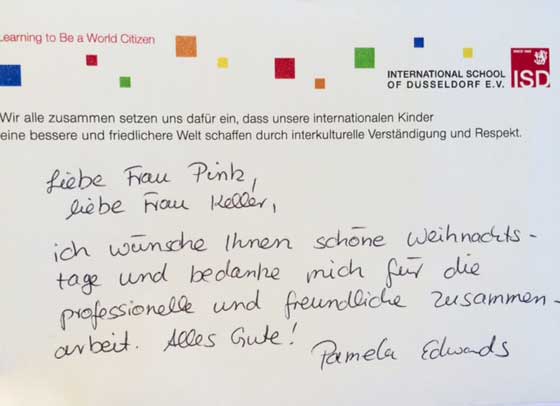 Learning to Be a World Citizen
SINCE 1968
ISD
INTERNATIONAL SCHOOL
OF DUSSELDORF E.V.
Wir alle zusammen setzen uns dafür ein, dass unsere internationalen Kinder
eine bessere und friedlichere Welt schaffen durch interkulturelle Verständigung und Respekt.
Liebe Frau Pink,
liebe Frau Keller,
ich wünsche Ihnen schöne Weihnachts-
tage und bedanke mich für die
professionelle und freundliche Zusammen-
arbeit. Alles Gute!
Pamela Edwards